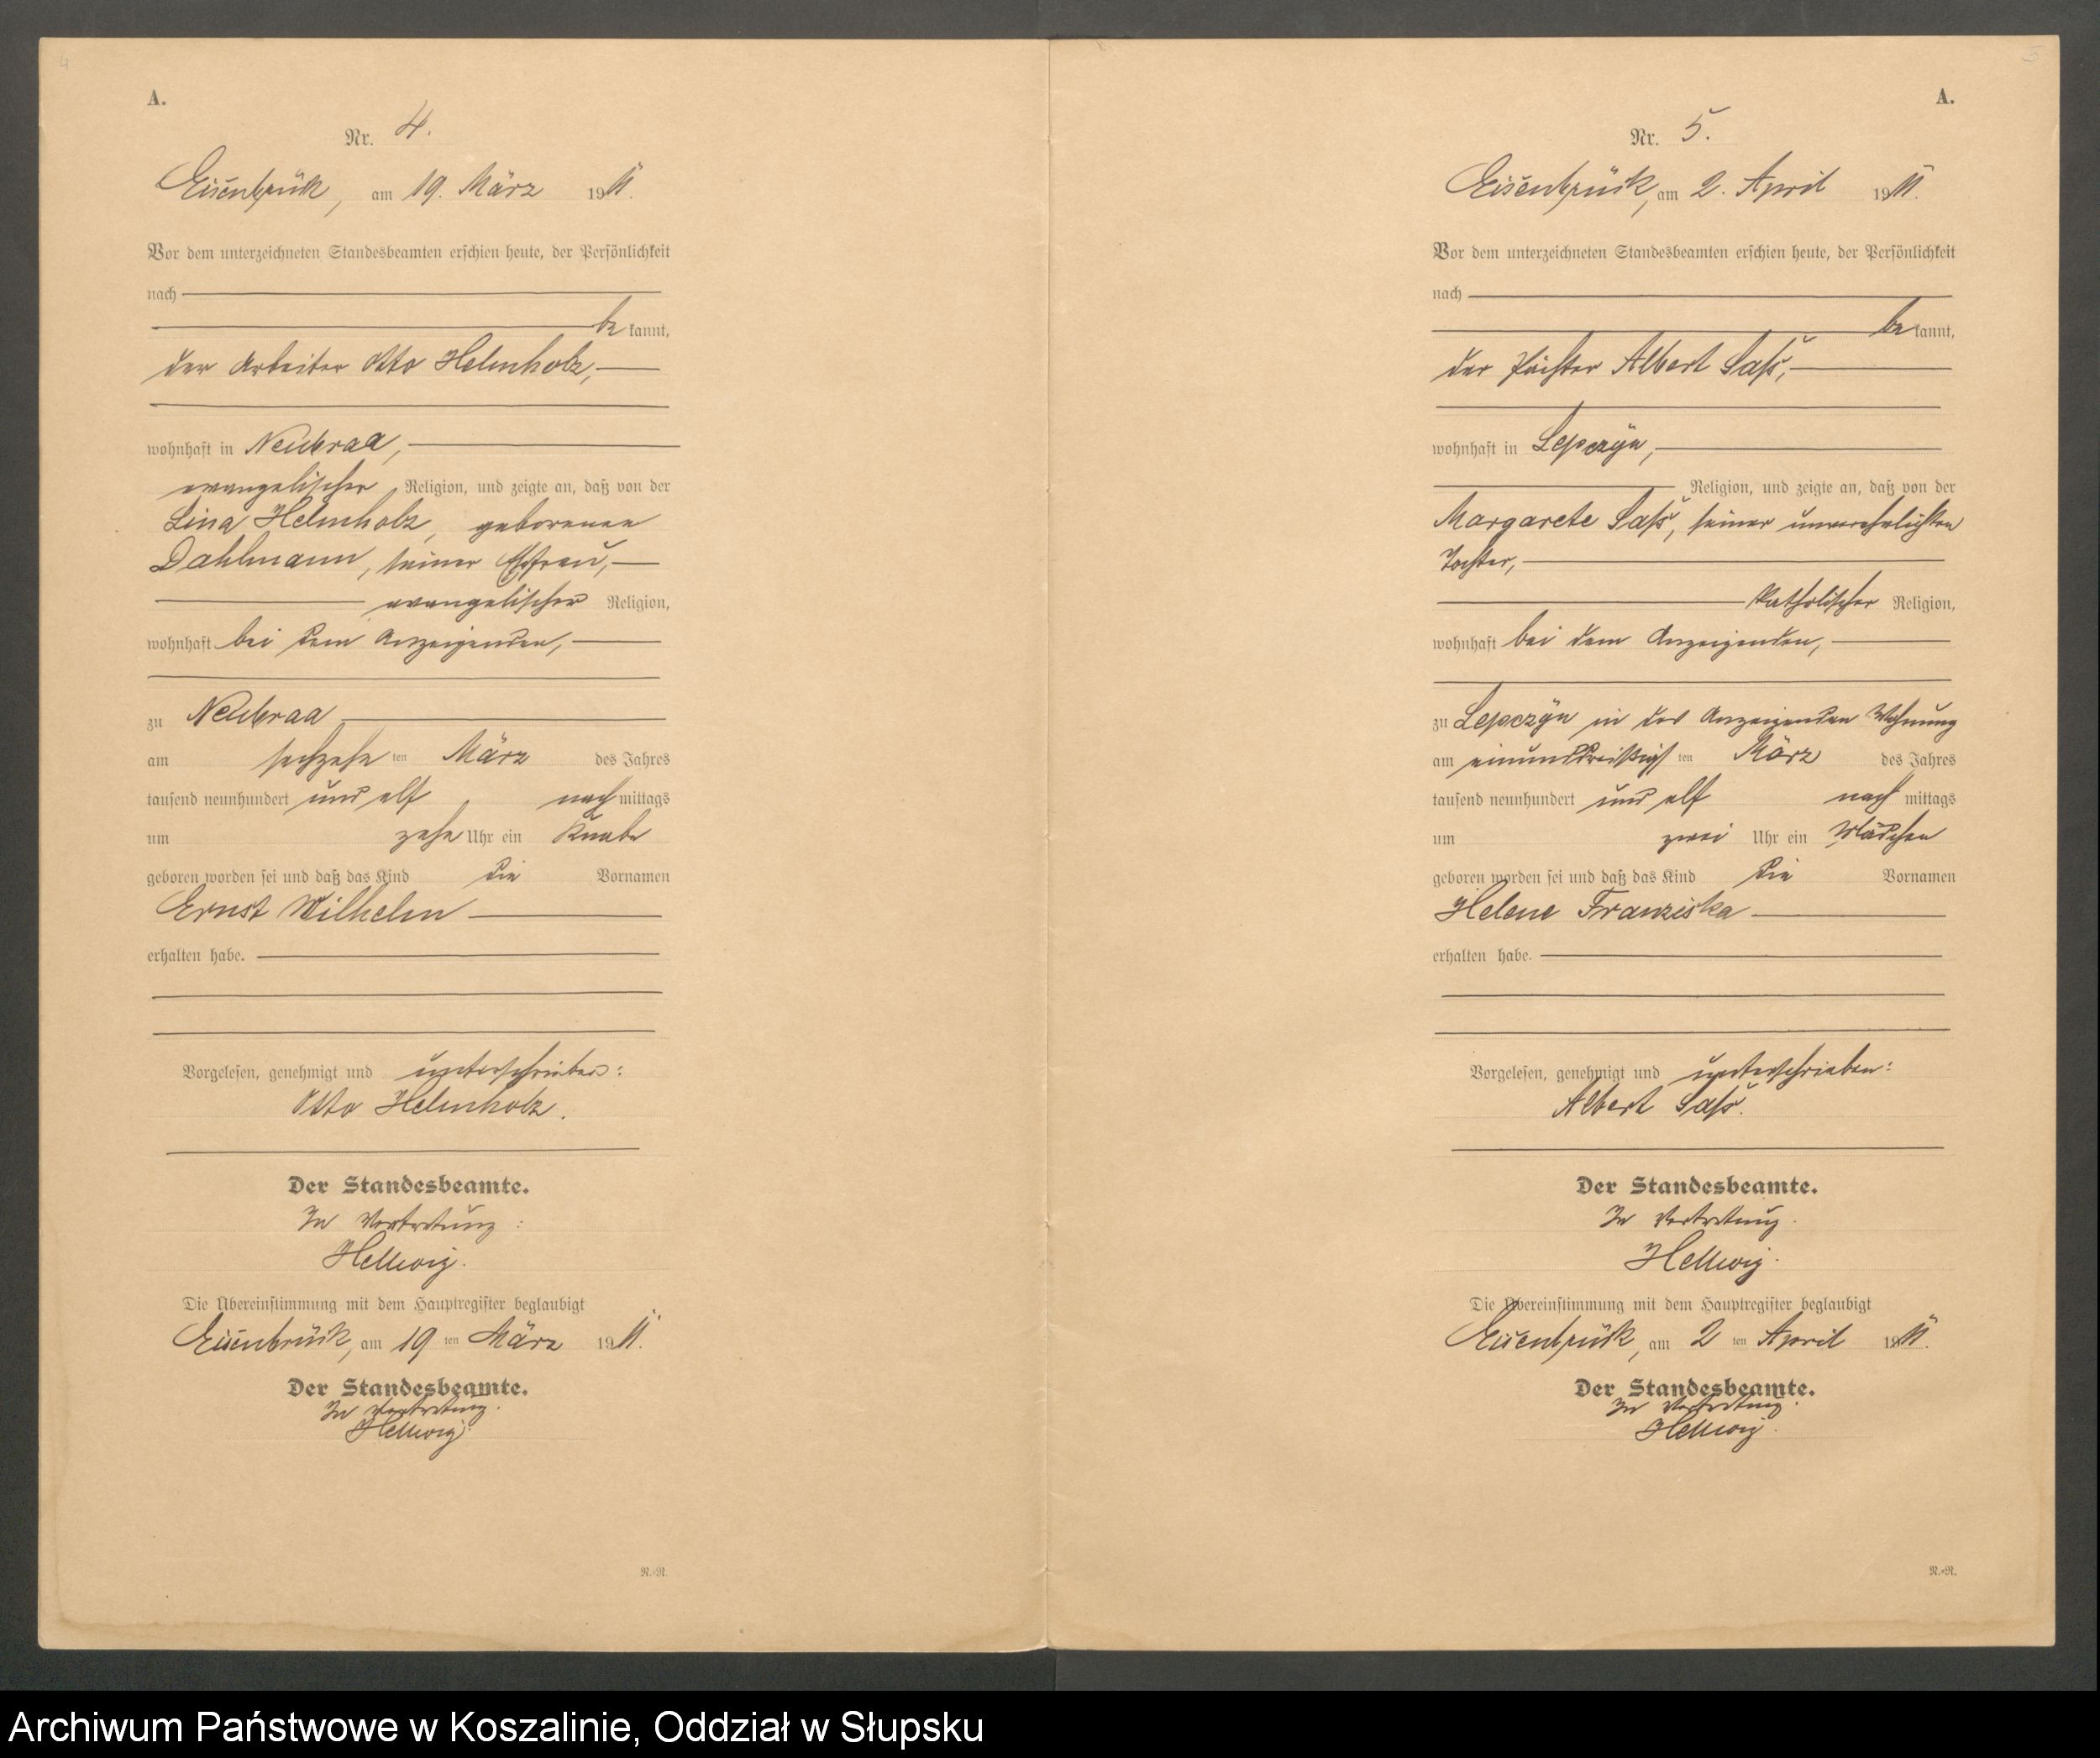 4
A.
Nr. 4.
Eisenbrück, am 19. März 1911.
Vor dem unterzeichneten Standesbeamten erschien heute, der Persönlichkeit
nach
be kannt,
der Arbeiter Otto Helmholz,
wohnhaft in Neubraa,
evangelischer Religion, und zeigte an, daß von der
Lina Helmholz, geborenen
Dahlmann, seiner Ehefrau,
evangelischer Religion,
wohnhaft bei dem Anzeigenden,
zu Neubraa
am sechzehn ten März des Jahres
tausend neunhundert und elf nach mittags
um zehn Uhr ein Knabe
geboren worden sei und daß das Kind die Vornamen
Ernst Wilhelm
erhalten habe.
Vorgelesen, genehmigt und unterschrieben:
Otto Helmholz.
Der Standesbeamte.
In Vertretung:
Hellwig.
Die Übereinstimmung mit dem Hauptregister beglaubigt
Eisenbrück, am 19 ten März 1911.
Der Standesbeamte.
In Vertretung.
Hellwig.
R.-R.
5
A.
Nr. 5.
Eisenbrück, am 2. April 1911.
Vor dem unterzeichneten Standesbeamten erschien heute, der Persönlichkeit
nach
be kannt,
der Pächter Albert Saß,
wohnhaft in Lepczyn,
Religion, und zeigte an, daß von der
Margarete Saß, seiner unverehelichten
Tochter,
katholischer Religion,
wohnhaft bei dem Anzeigenden,
zu Lepczyn in des Anzeigenden Wohnung
am einunddreißigs ten März des Jahres
tausend neunhundert und elf nach mittags
um zwei Uhr ein Mädchen
geboren worden sei und daß das Kind die Vornamen
Helene Franziska
erhalten habe.
Vorgelesen, genehmigt und unterschrieben:
Albert Saß.
Der Standesbeamte.
In Vertretung.
Hellwig.
Die Übereinstimmung mit dem Hauptregister beglaubigt
Eisenbrück, am 2 ten April 1911.
Der Standesbeamte.
In Vertretung.
Hellwig.
R.-R.
Archiwum Państwowe w Koszalinie, Oddział w Słupsku